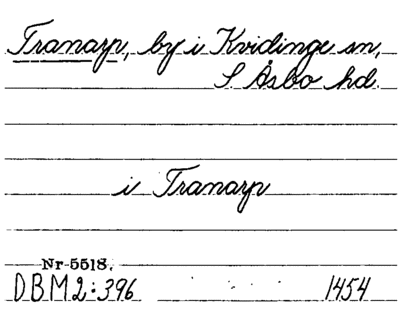 Tranarp, by i Kvidinge sn,
S. Åsbo hd.
i Tranarp
Nr 5518.
DBM2:396 1454